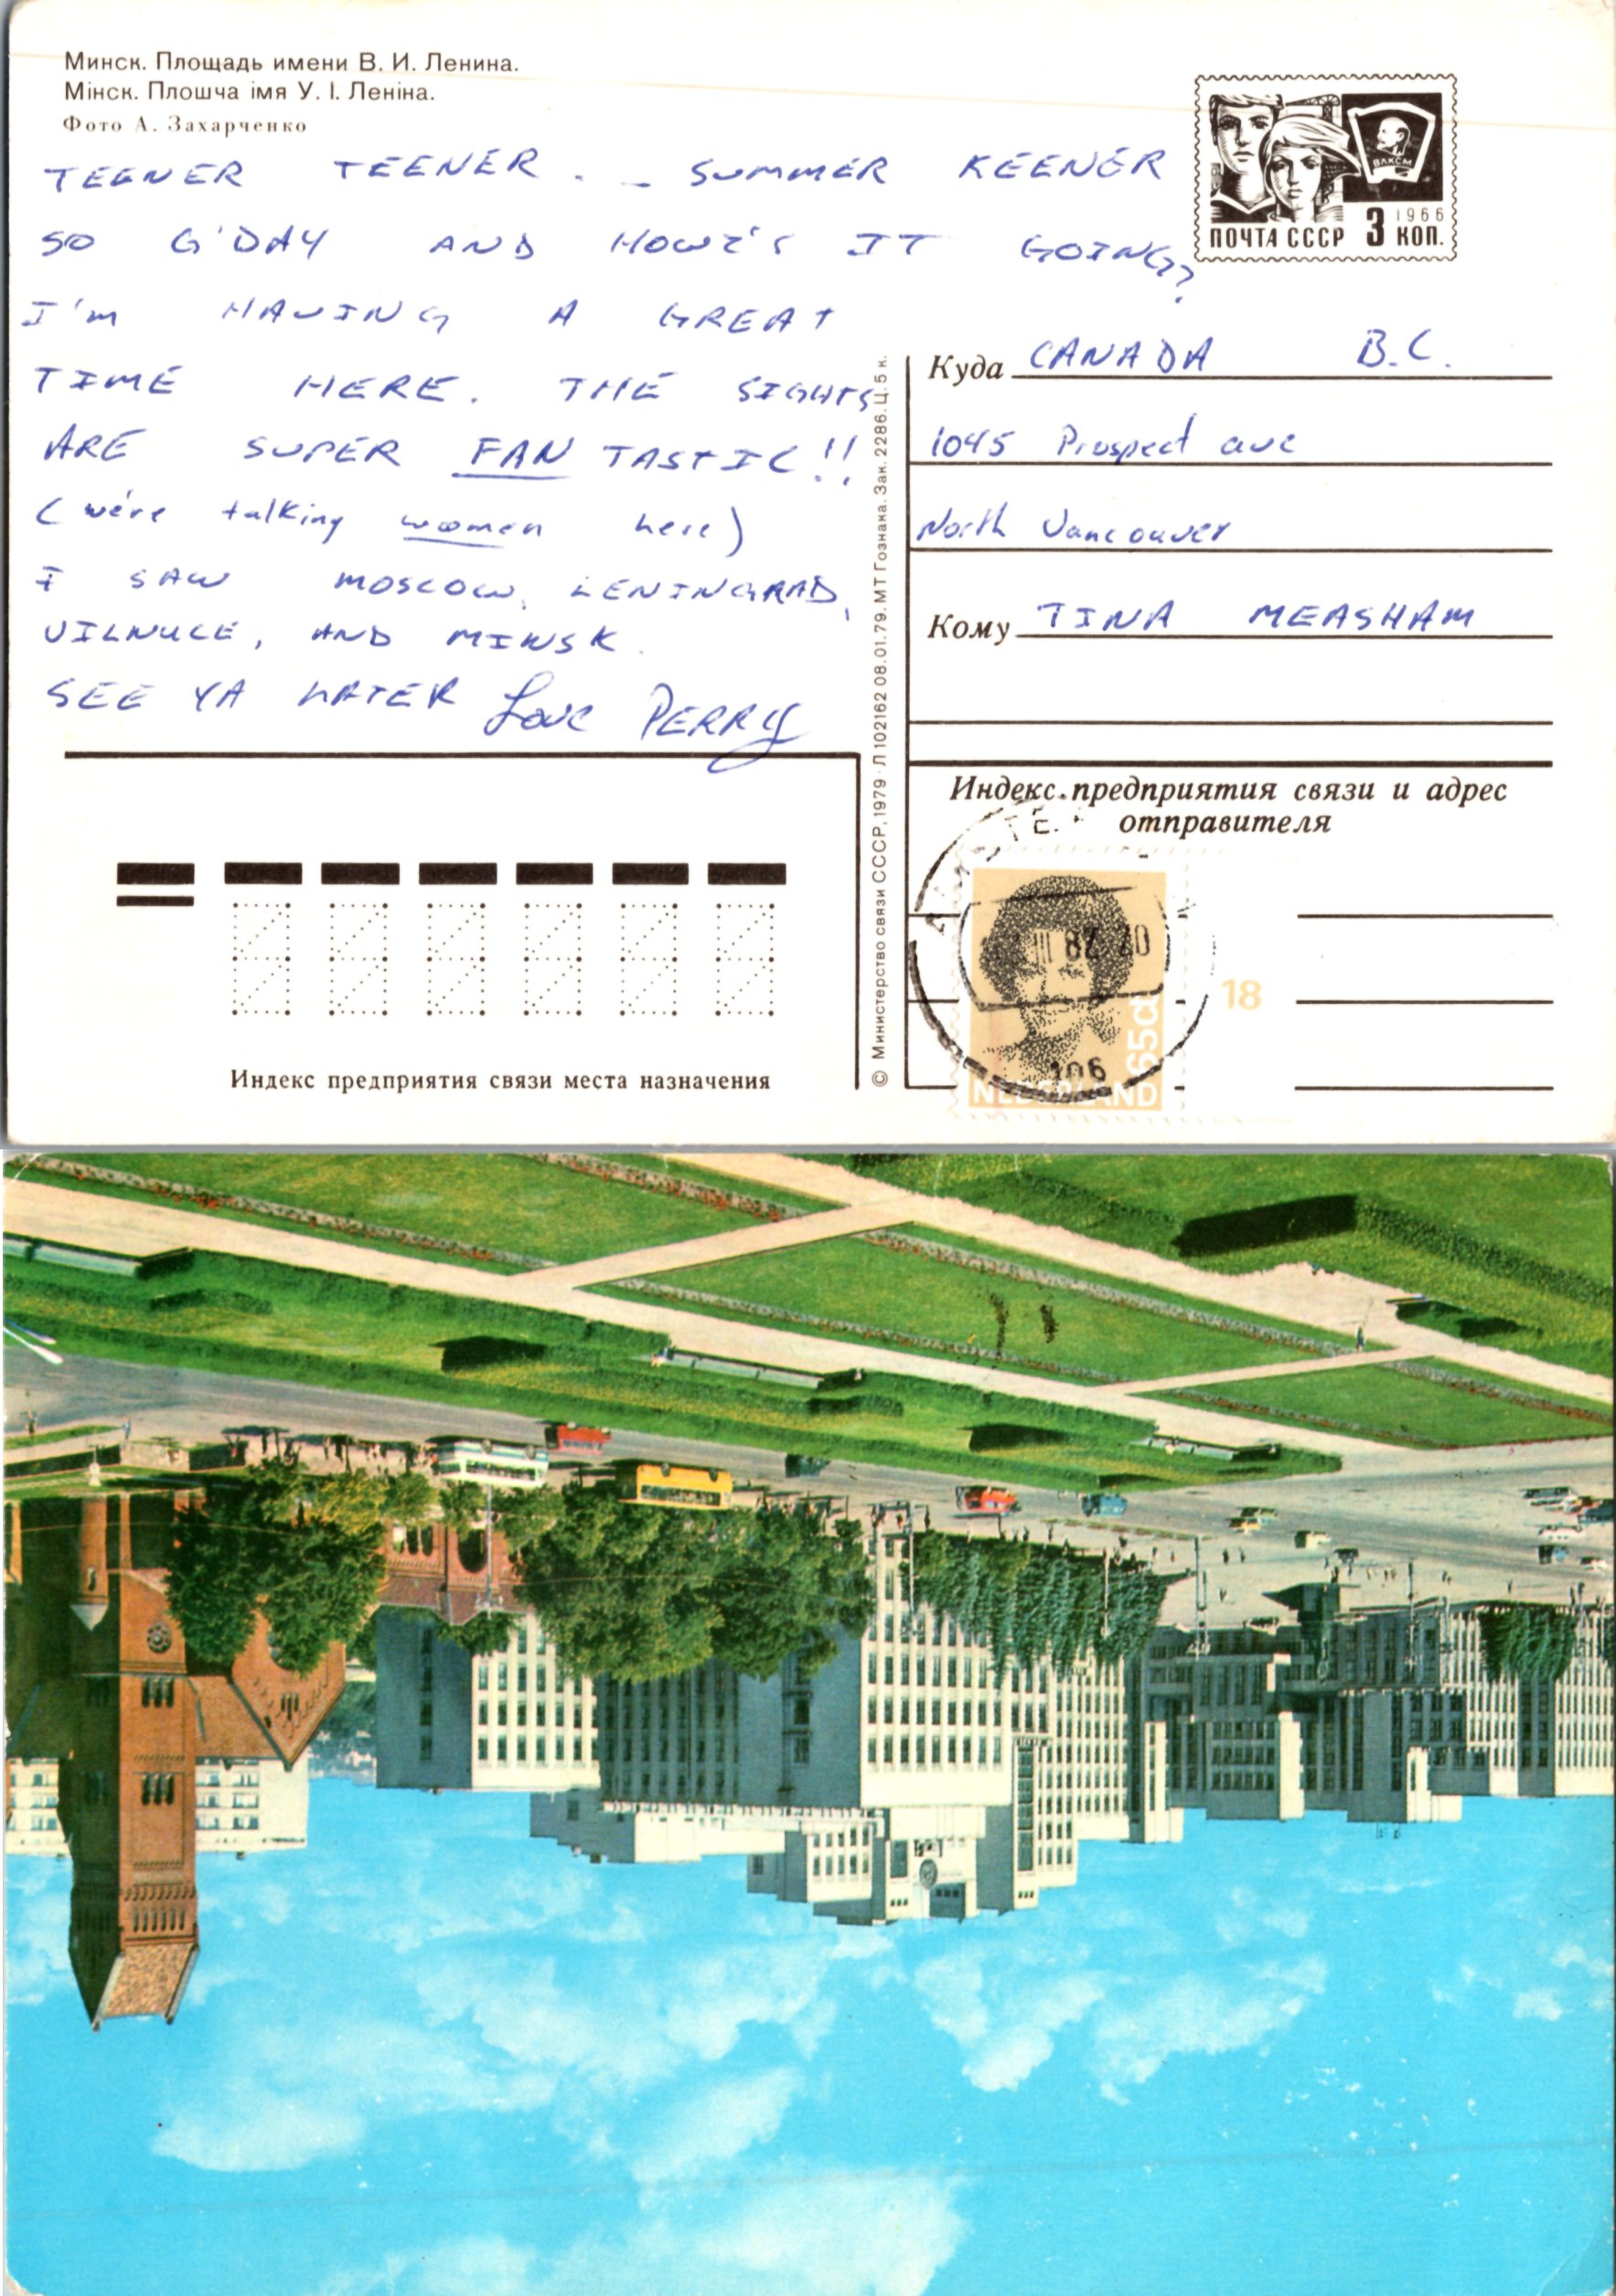 Минск. Площадь имени В. И. Ленина.
Мінск. Плошча імя У. І. Леніна.
Фото А. Захарченко
ВЛКСМ
1966
ПОЧТА СССР 3 КОП.
TEENER TEENER . _ SUMMER KEENER
SO G'DAY AND HOWZ'S IT GOING?
I'm HAVING A GREAT
TIME HERE. THE SIGHTS
ARE SUPER FANTASTIC!!
(we're talking women here)
I SAW MOSCOW, LENINGRAD,
VILNUCE, AND MINSK.
SEE YA LATER Love PERRY
Куда CANADA B.C.
1045 Prospect ave
North Vancouver
Кому TINA MEASHAM
Индекс предприятия связи и адрес
отправителя
III 82
106
65ct
NEDERLAND
18
Индекс предприятия связи места назначения
© Министерство связи СССР, 1979 · Л 102162 08.01.79. МТ Гознака. Зак. 2286. Ц. 5 к.